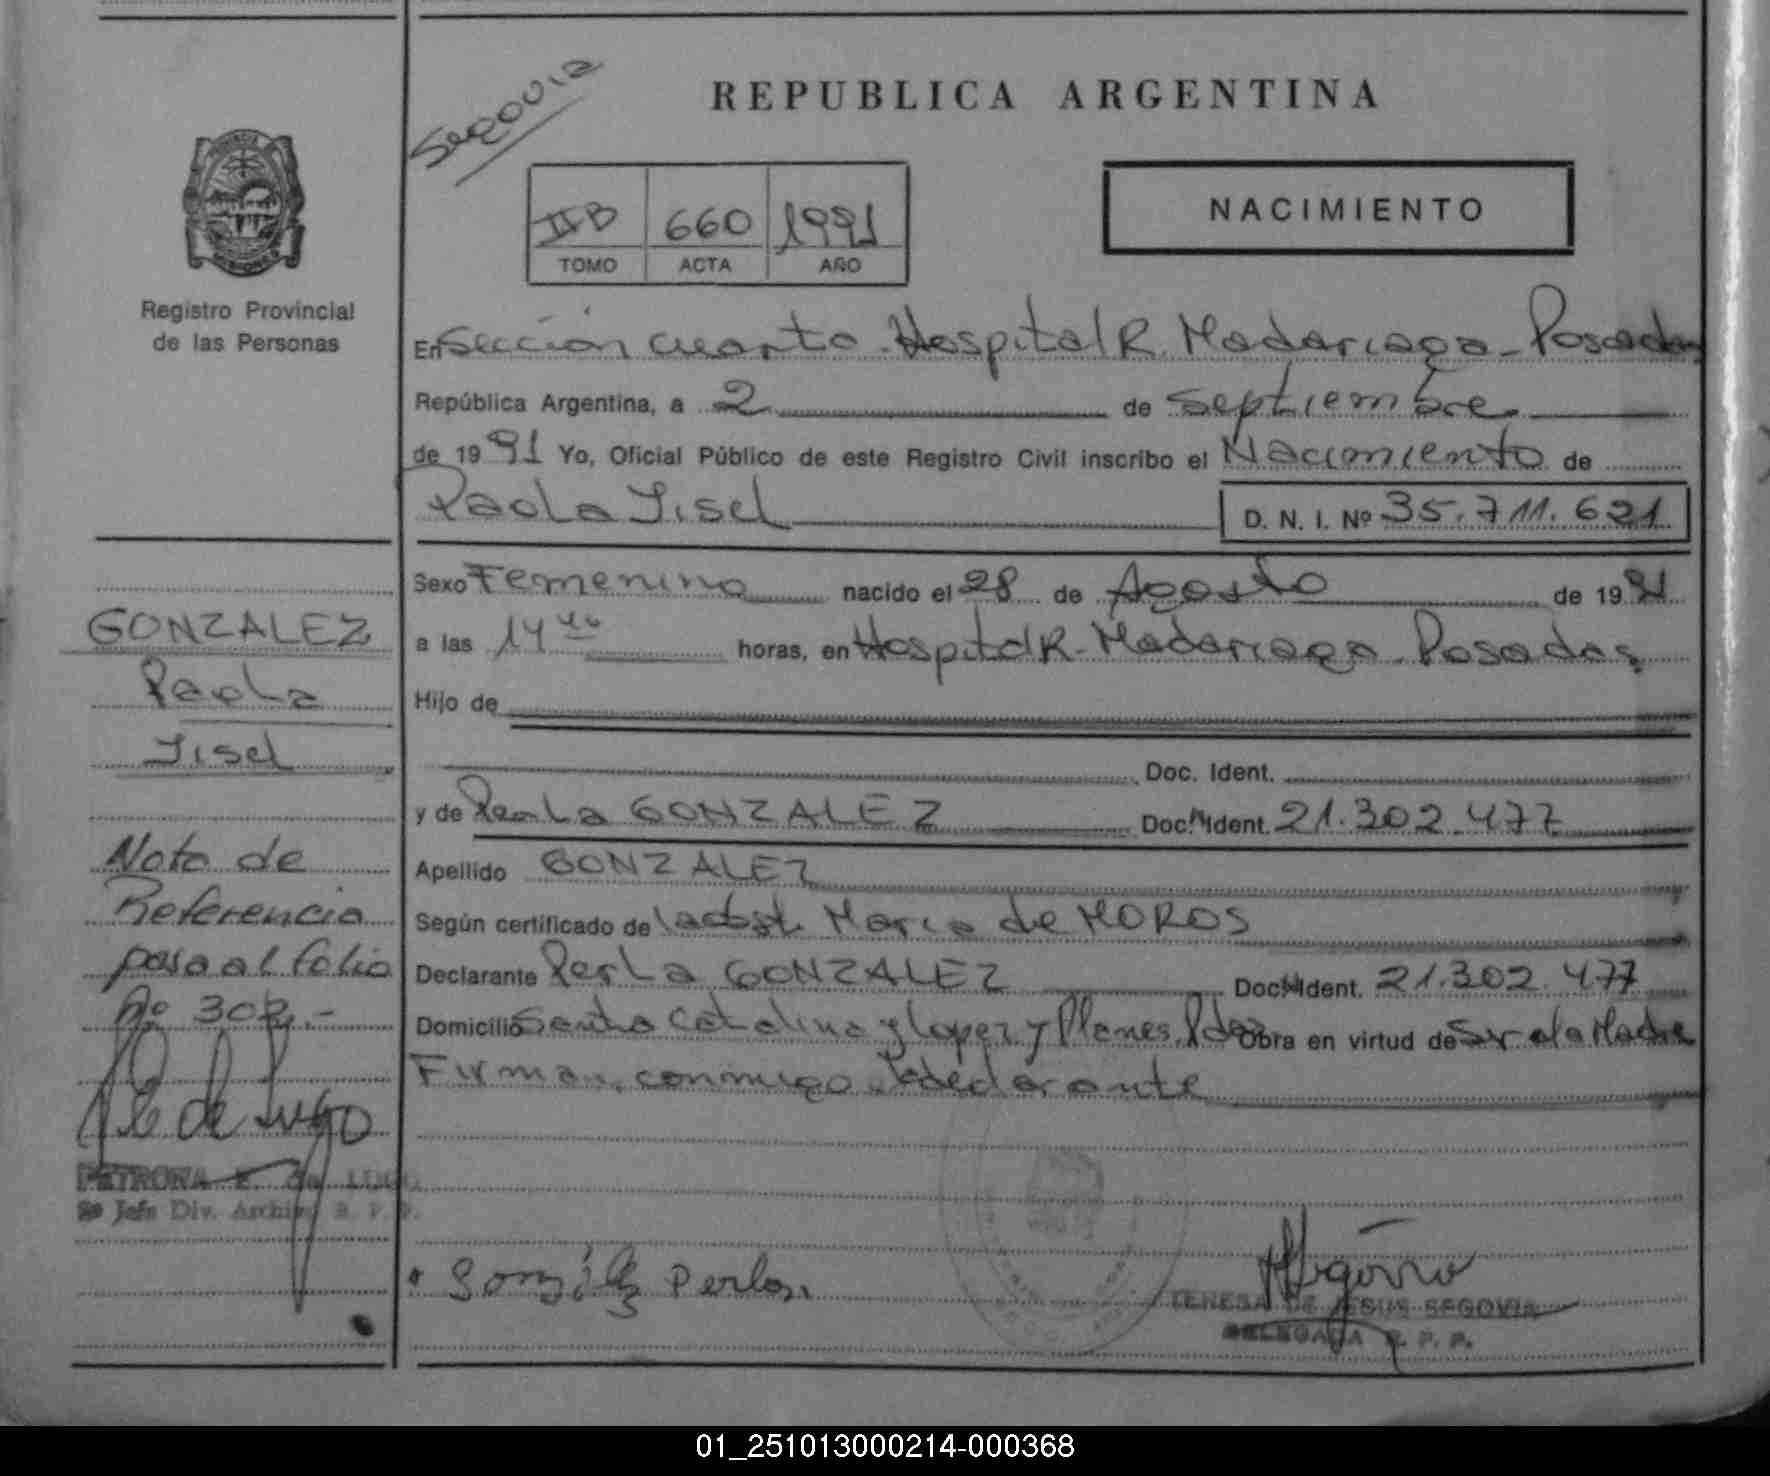 Segovia
REPUBLICA ARGENTINA
NACIMIENTO
II B 660 1991
TOMO ACTA AÑO
PROVINCIA
MISIONES
Registro Provincial
de las Personas
En Sección cuarta - Hospital R. Madariaga - Posadas
República Argentina, a 2 de Septiembre
de 1991 Yo, Oficial Público de este Registro Civil inscribo el Nacimiento de
Paola Jisel D. N. I. Nº 35.711.621
Sexo Femenino nacido el 28 de Agosto de 1991
a las 14 horas, en Hospital R. Madariaga - Posadas
Hijo de
Doc. Ident.
y de Perla GONZALEZ Doc. Ident. 21.302.477
Apellido GONZALEZ
Según certificado de la obst. Maria de MOROS
Declarante Perla GONZALEZ Doc. Ident. 21.302.477
Domicilio Santa Catalina y Lopez y Planes, Pdas Obra en virtud de Ser ela Madre
Firman conmigo declarante
GONZALEZ
Paola
Jisel
Nota de
Referencia
pasa al folio
Nº 302.-
PETRONA E. de LUGO
2º Jefe Div. Archivo R. P. P.
Gonzalez Perla
TERESA DE JESUS SEGOVIA
DELEGADA R. P. P.
01_251013000214-000368